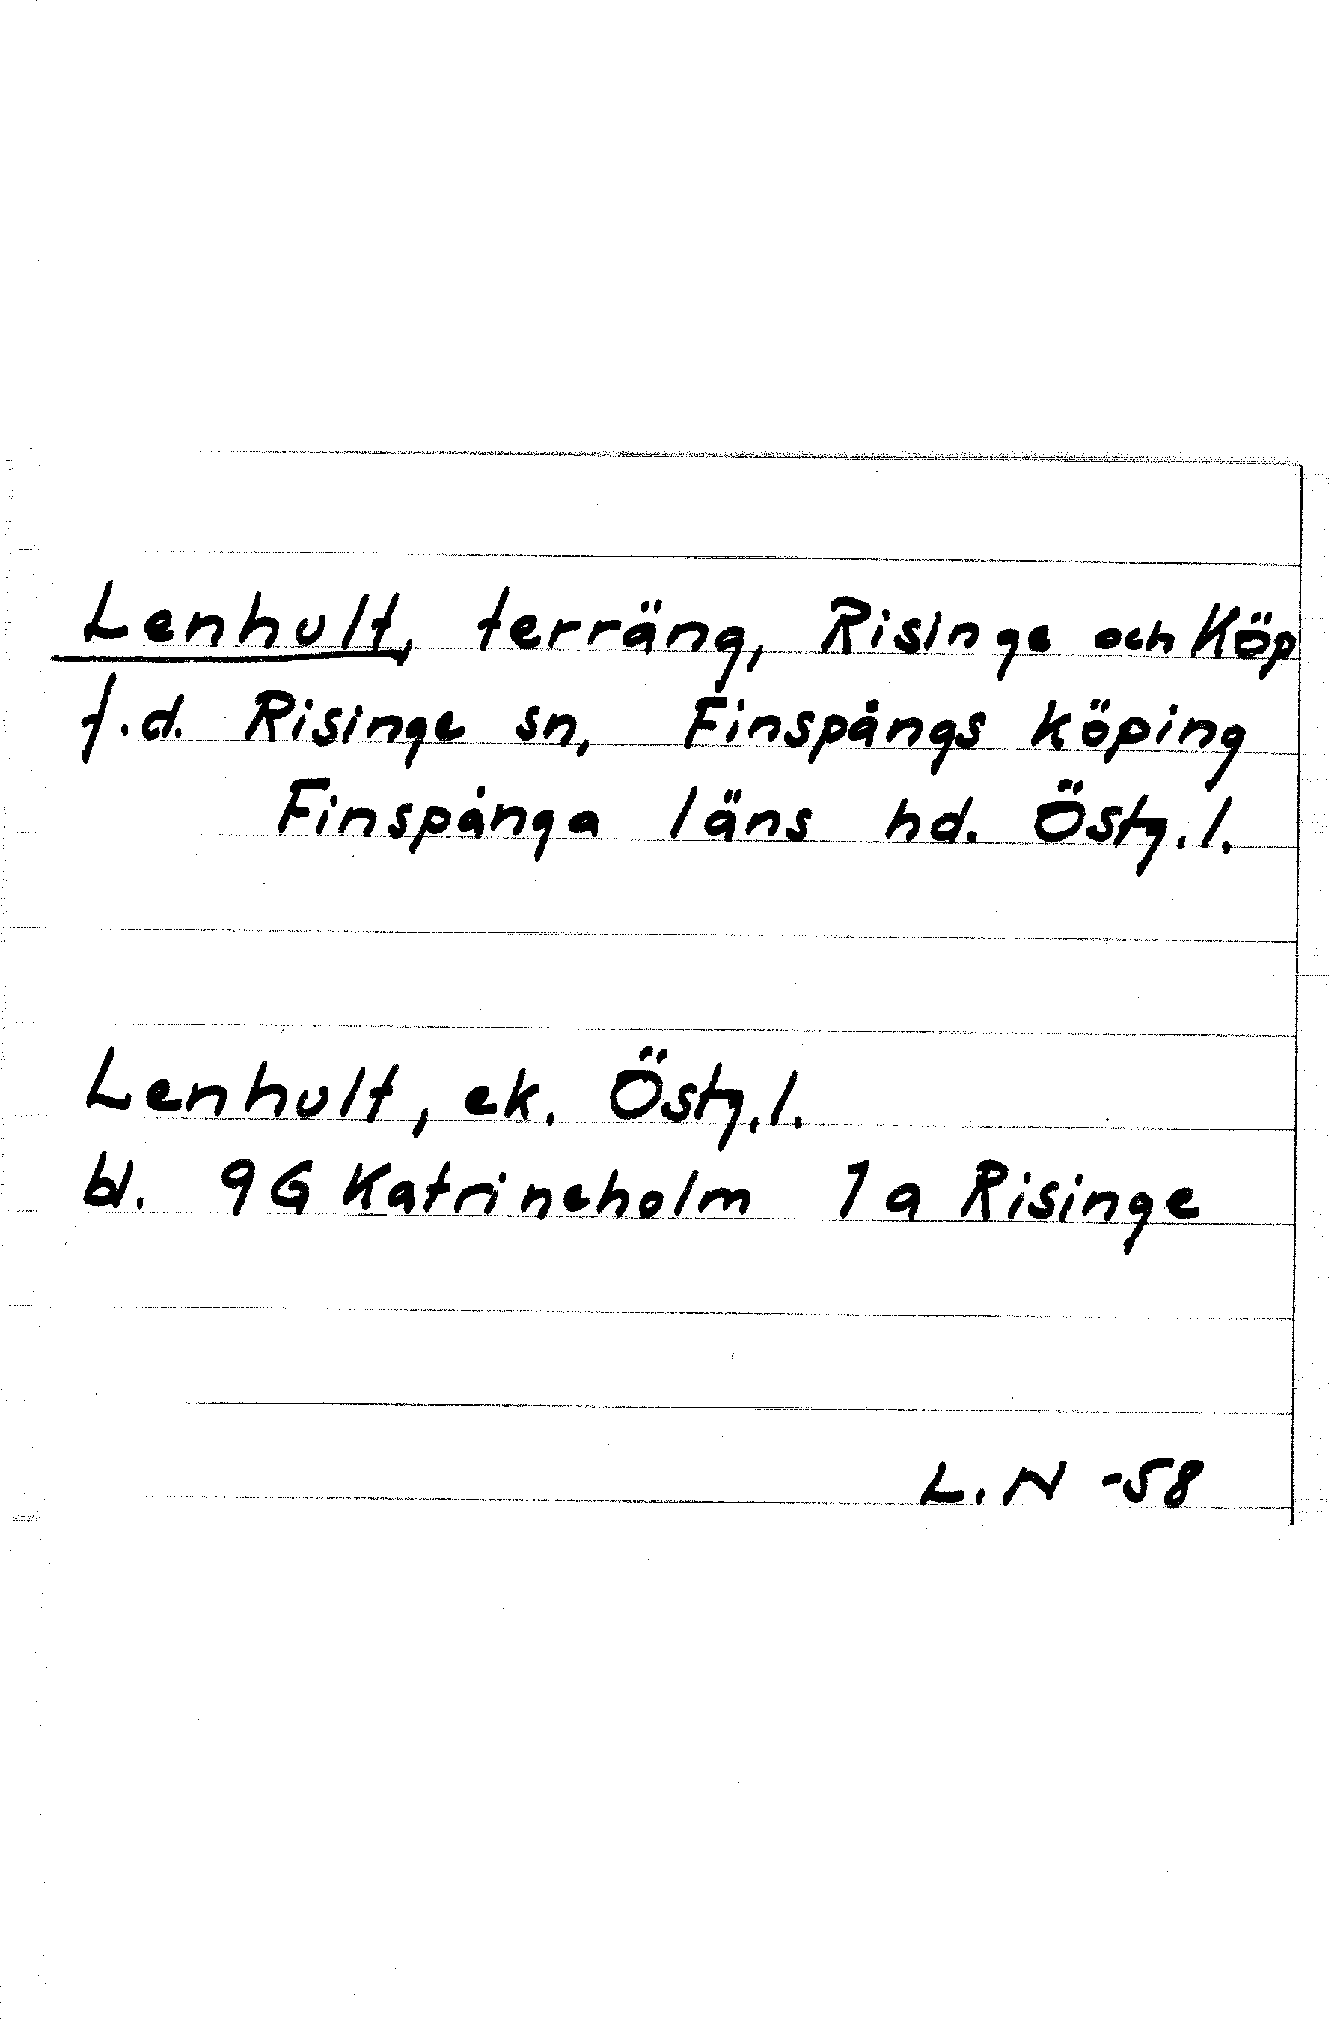 Lenhult, terräng, Risinge och Köp
f.d. Risinge sn, Finspångs köping
Finspånga läns hd. Östg.l.
Lenhult, ek. Östg.l.
bl. 9G Katrineholm 1a Risinge
L.N -58